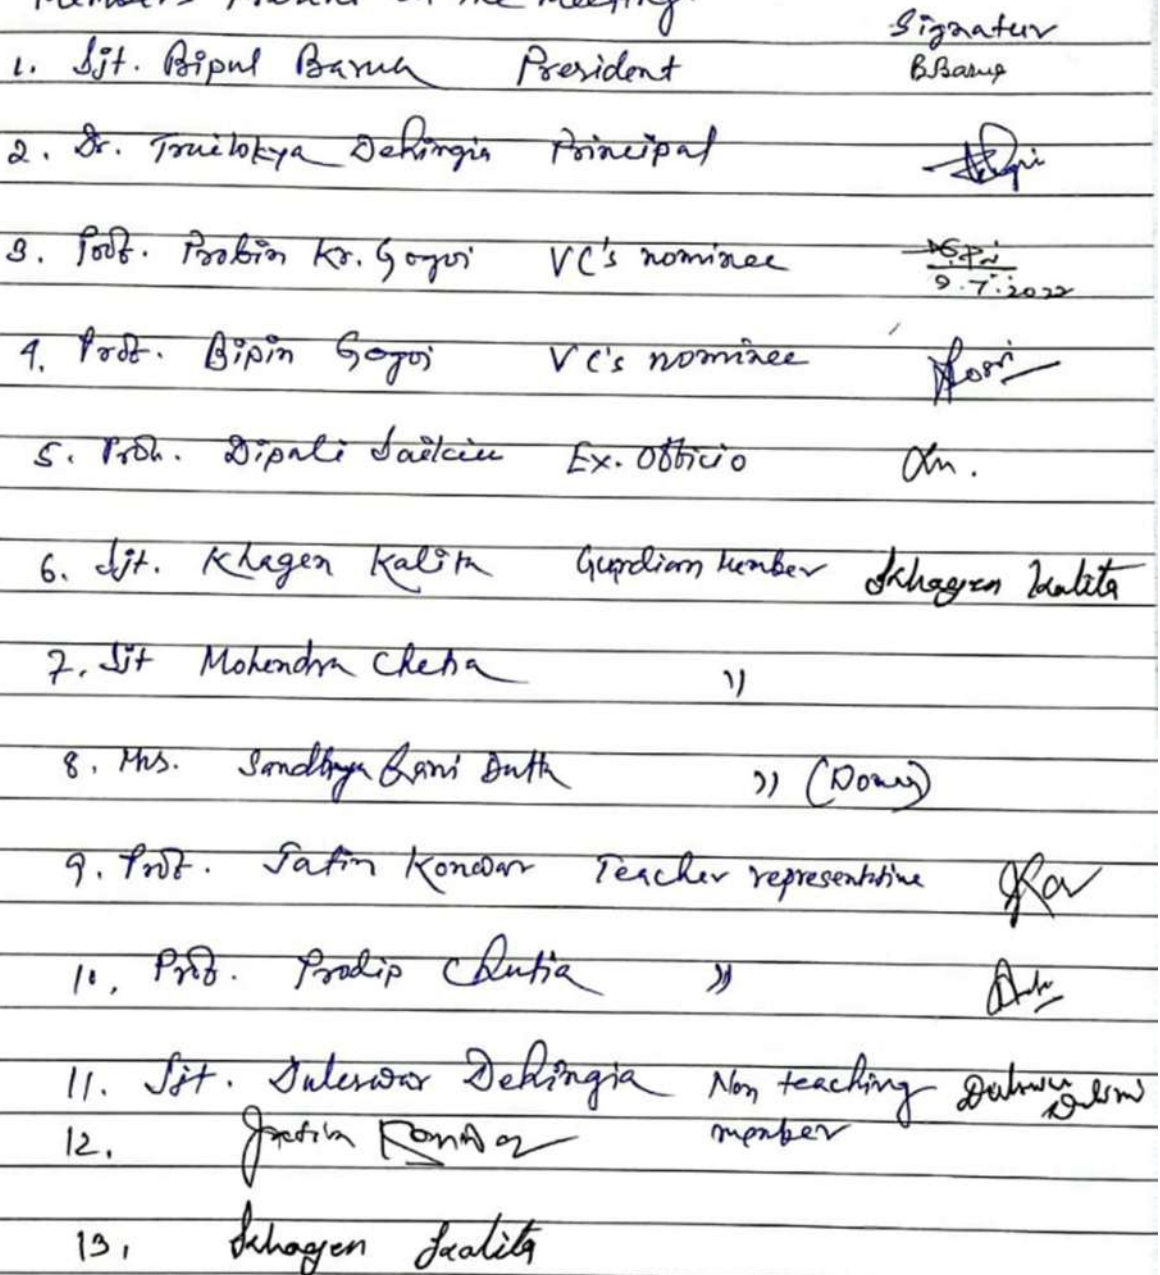 Members Present in the Meeting.
Signatur
1. Sjt. Bipul Barua President B Barua
2. Dr. Trailokya Dehingia Principal
3. Prof. Probin Kr. Gogoi VC's nominee
9.7.2022
4. Prof. Bipin Gogoi VC's nominee
5. Prof. Dipali Saikia Ex. Officio
6. Sjt. Khagen Kalita Gurdian Member Khagen Kalita
7. Sjt Mohendra Chetia "
8. Mrs. Sandhya Rani Dutta " (Doner)
9. Prof. Jatin Konwar Teacher representitive
10. Prof. Pradip Chutia "
11. Sjt. Duleswar Dehingia Non teaching
member
12. Jatin Konwar
13. Khagen Kalita